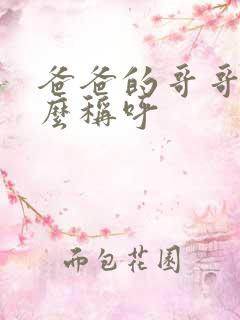 爸爸的哥哥
麼稱呼
布包花園